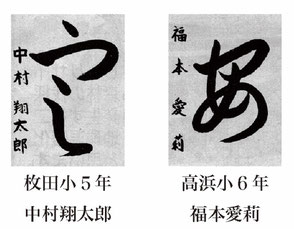 中村 翔太郎
枚田小５年
中村翔太郎
福本 愛莉
高浜小６年
福本愛莉